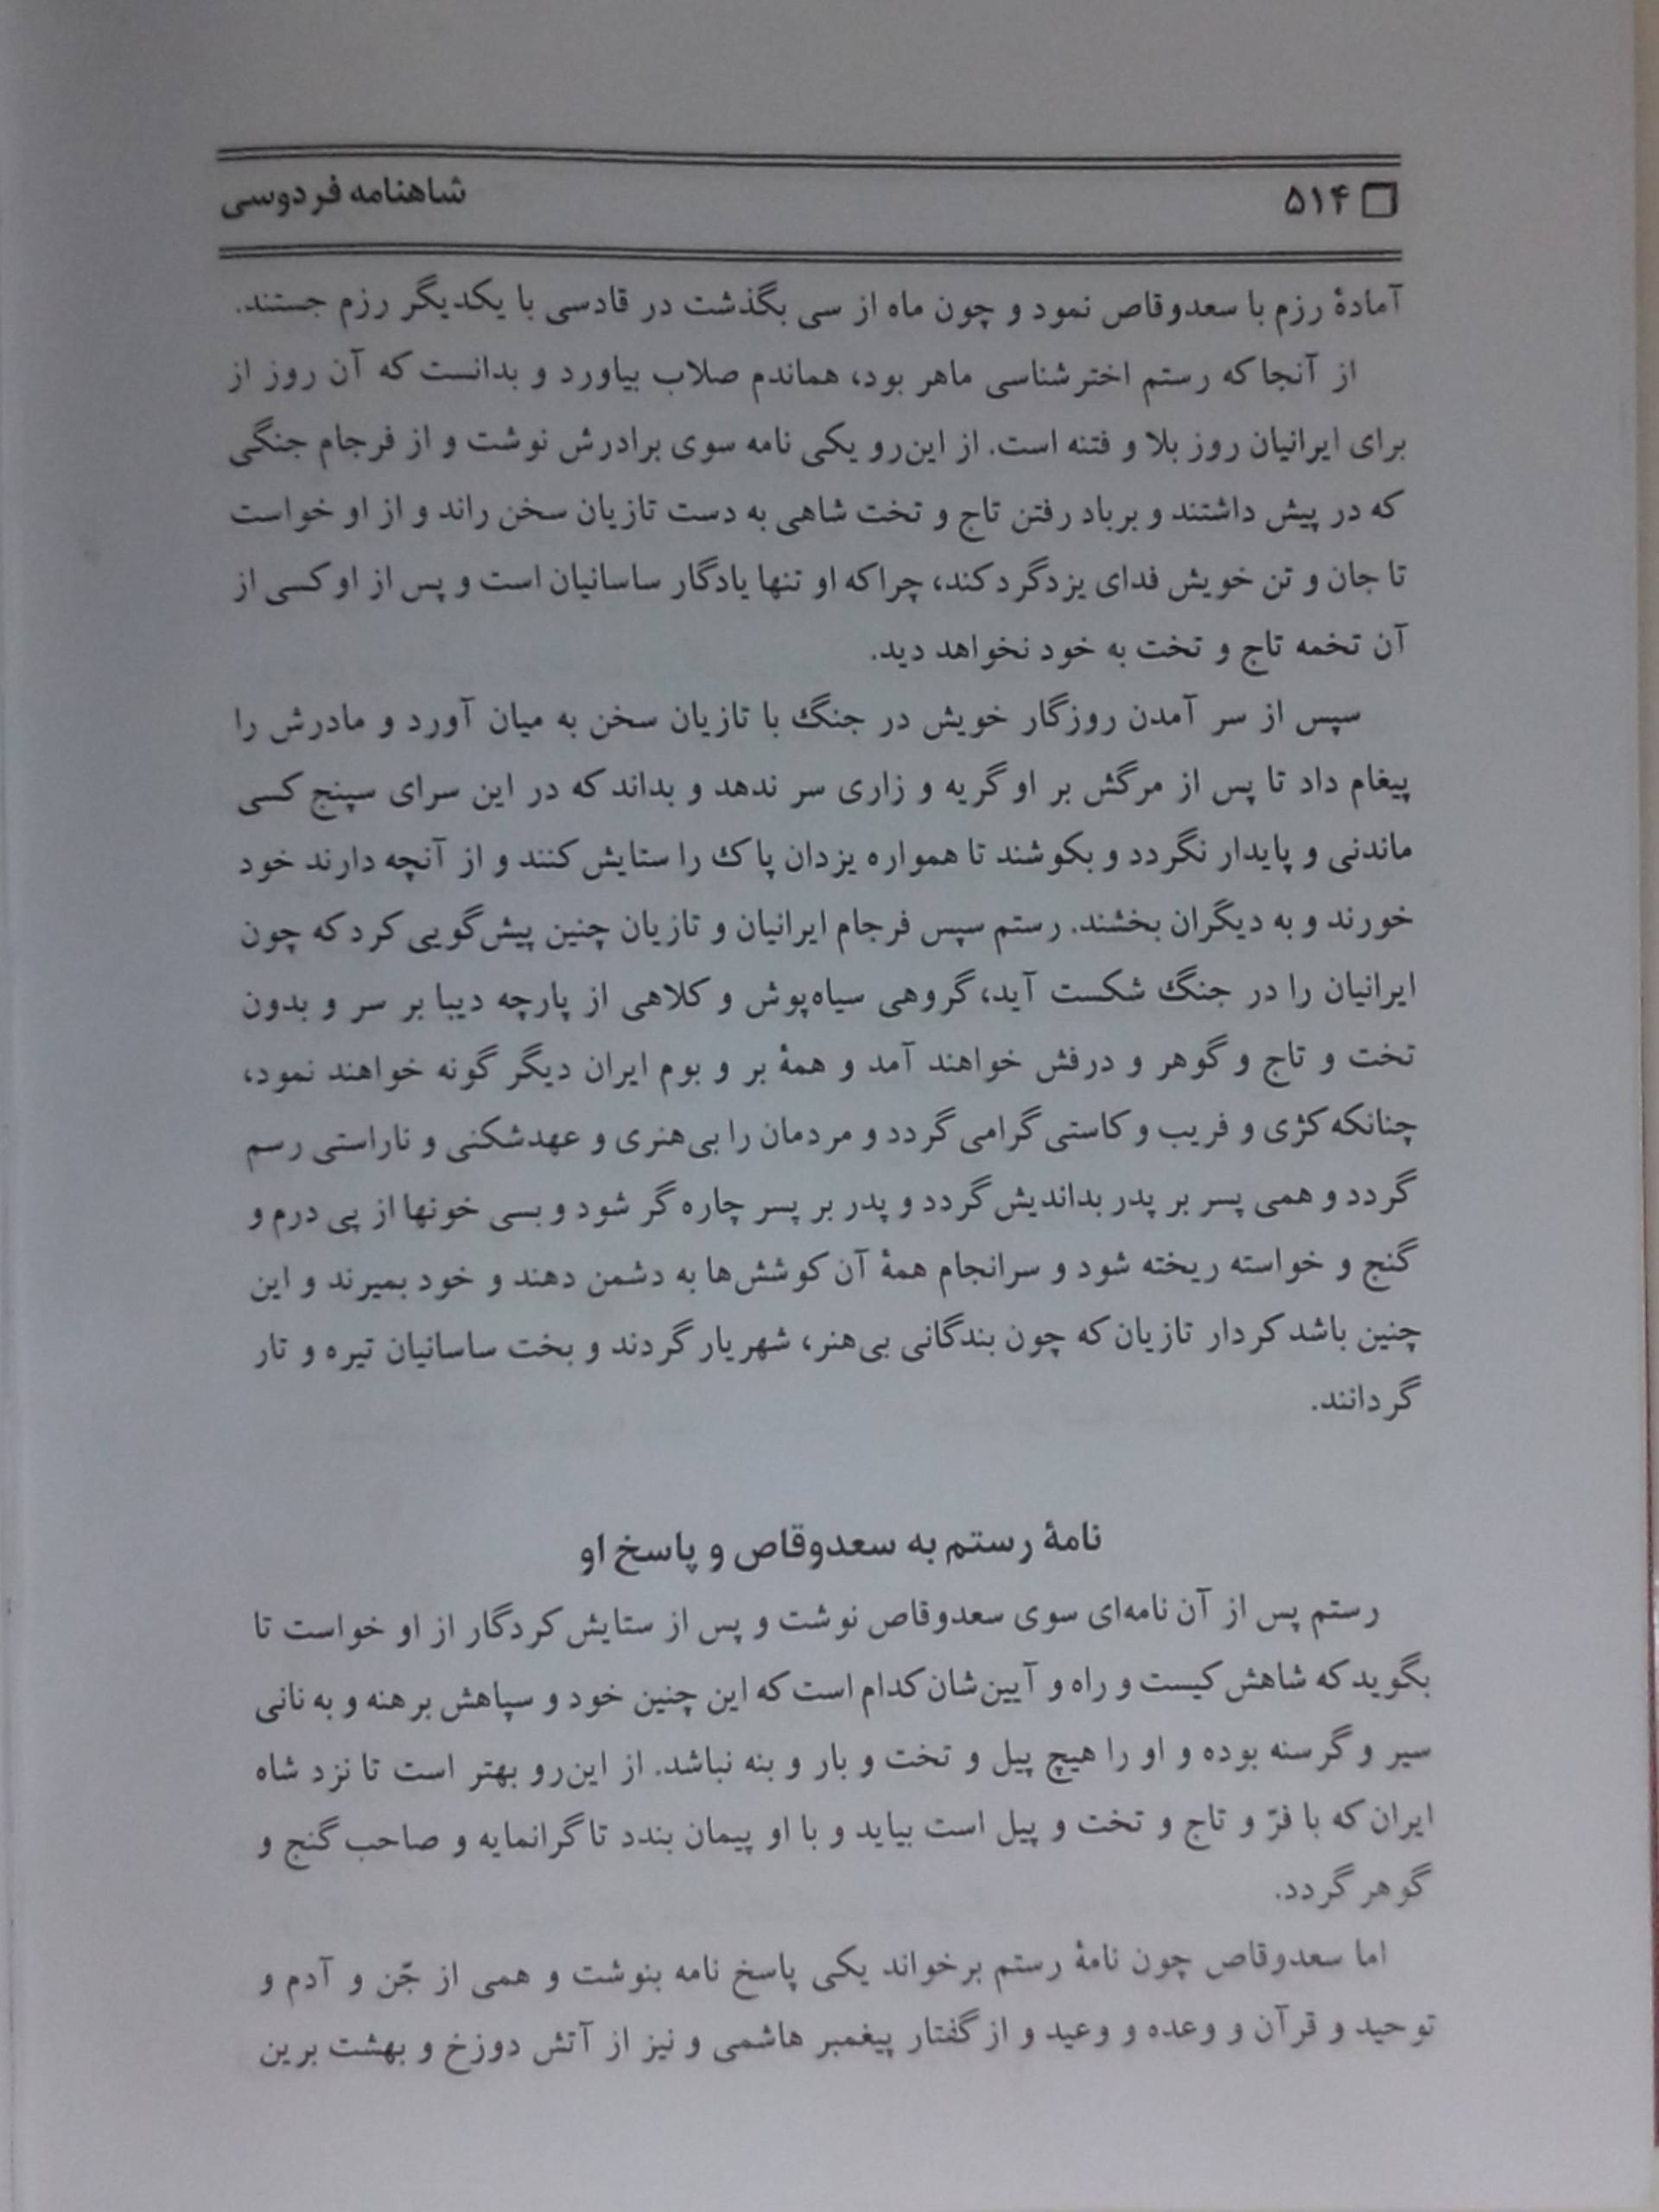 ۵۱۴ شاهنامه فردوسی
آمادهٔ رزم با سعدوقاص نمود و چون ماه از سی بگذشت در قادسی با یکدیگر رزم جستند.
از آنجا که رستم اخترشناسی ماهر بود، هماندم صلاب بیاورد و بدانست که آن روز از
برای ایرانیان روز بلا و فتنه است. از این‌رو یکی نامه سوی برادرش نوشت و از فرجام جنگی
که در پیش داشتند و برباد رفتن تاج و تخت شاهی به دست تازیان سخن راند و از او خواست
تا جان و تن خویش فدای یزدگرد کند، چراکه او تنها یادگار ساسانیان است و پس از او کسی از
آن تخمه تاج و تخت به خود نخواهد دید.
سپس از سر آمدن روزگار خویش در جنگ با تازیان سخن به میان آورد و مادرش را
پیغام داد تا پس از مرگش بر او گریه و زاری سر ندهد و بداند که در این سرای سپنج کسی
ماندنی و پایدار نگردد و بکوشند تا همواره یزدان پاک را ستایش کنند و از آنچه دارند خود
خورند و به دیگران بخشند. رستم سپس فرجام ایرانیان و تازیان چنین پیش‌گویی کرد که چون
ایرانیان را در جنگ شکست آید، گروهی سیاه‌پوش و کلاهی از پارچه دیبا بر سر و بدون
تخت و تاج و گوهر و درفش خواهند آمد و همهٔ بر و بوم ایران دیگر گونه خواهند نمود،
چنانکه کژی و فریب و کاستی گرامی گردد و مردمان را بی‌هنری و عهدشکنی و ناراستی رسم
گردد و همی پسر بر پدر بداندیش گردد و پدر بر پسر چاره گر شود و بسی خونها از پی درم و
گنج و خواسته ریخته شود و سرانجام همهٔ آن کوشش‌ها به دشمن دهند و خود بمیرند و این
چنین باشد کردار تازیان که چون بندگانی بی‌هنر، شهریار گردند و بخت ساسانیان تیره و تار
گردانند.
نامهٔ رستم به سعدوقاص و پاسخ او
رستم پس از آن نامه‌ای سوی سعدوقاص نوشت و پس از ستایش کردگار از او خواست تا
بگوید که شاهش کیست و راه و آیین‌شان کدام است که این چنین خود و سپاهش برهنه و به نانی
سیر و گرسنه بوده و او را هیچ پیل و تخت و بار و بنه نباشد. از این‌رو بهتر است تا نزد شاه
ایران که با فرّ و تاج و تخت و پیل است بیاید و با او پیمان بندد تا گرانمایه و صاحب گنج و
گوهر گردد.
اما سعدوقاص چون نامهٔ رستم برخواند یکی پاسخ نامه بنوشت و همی از جّن و آدم و
توحید و قرآن و وعده و وعید و از گفتار پیغمبر هاشمی و نیز از آتش دوزخ و بهشت برین